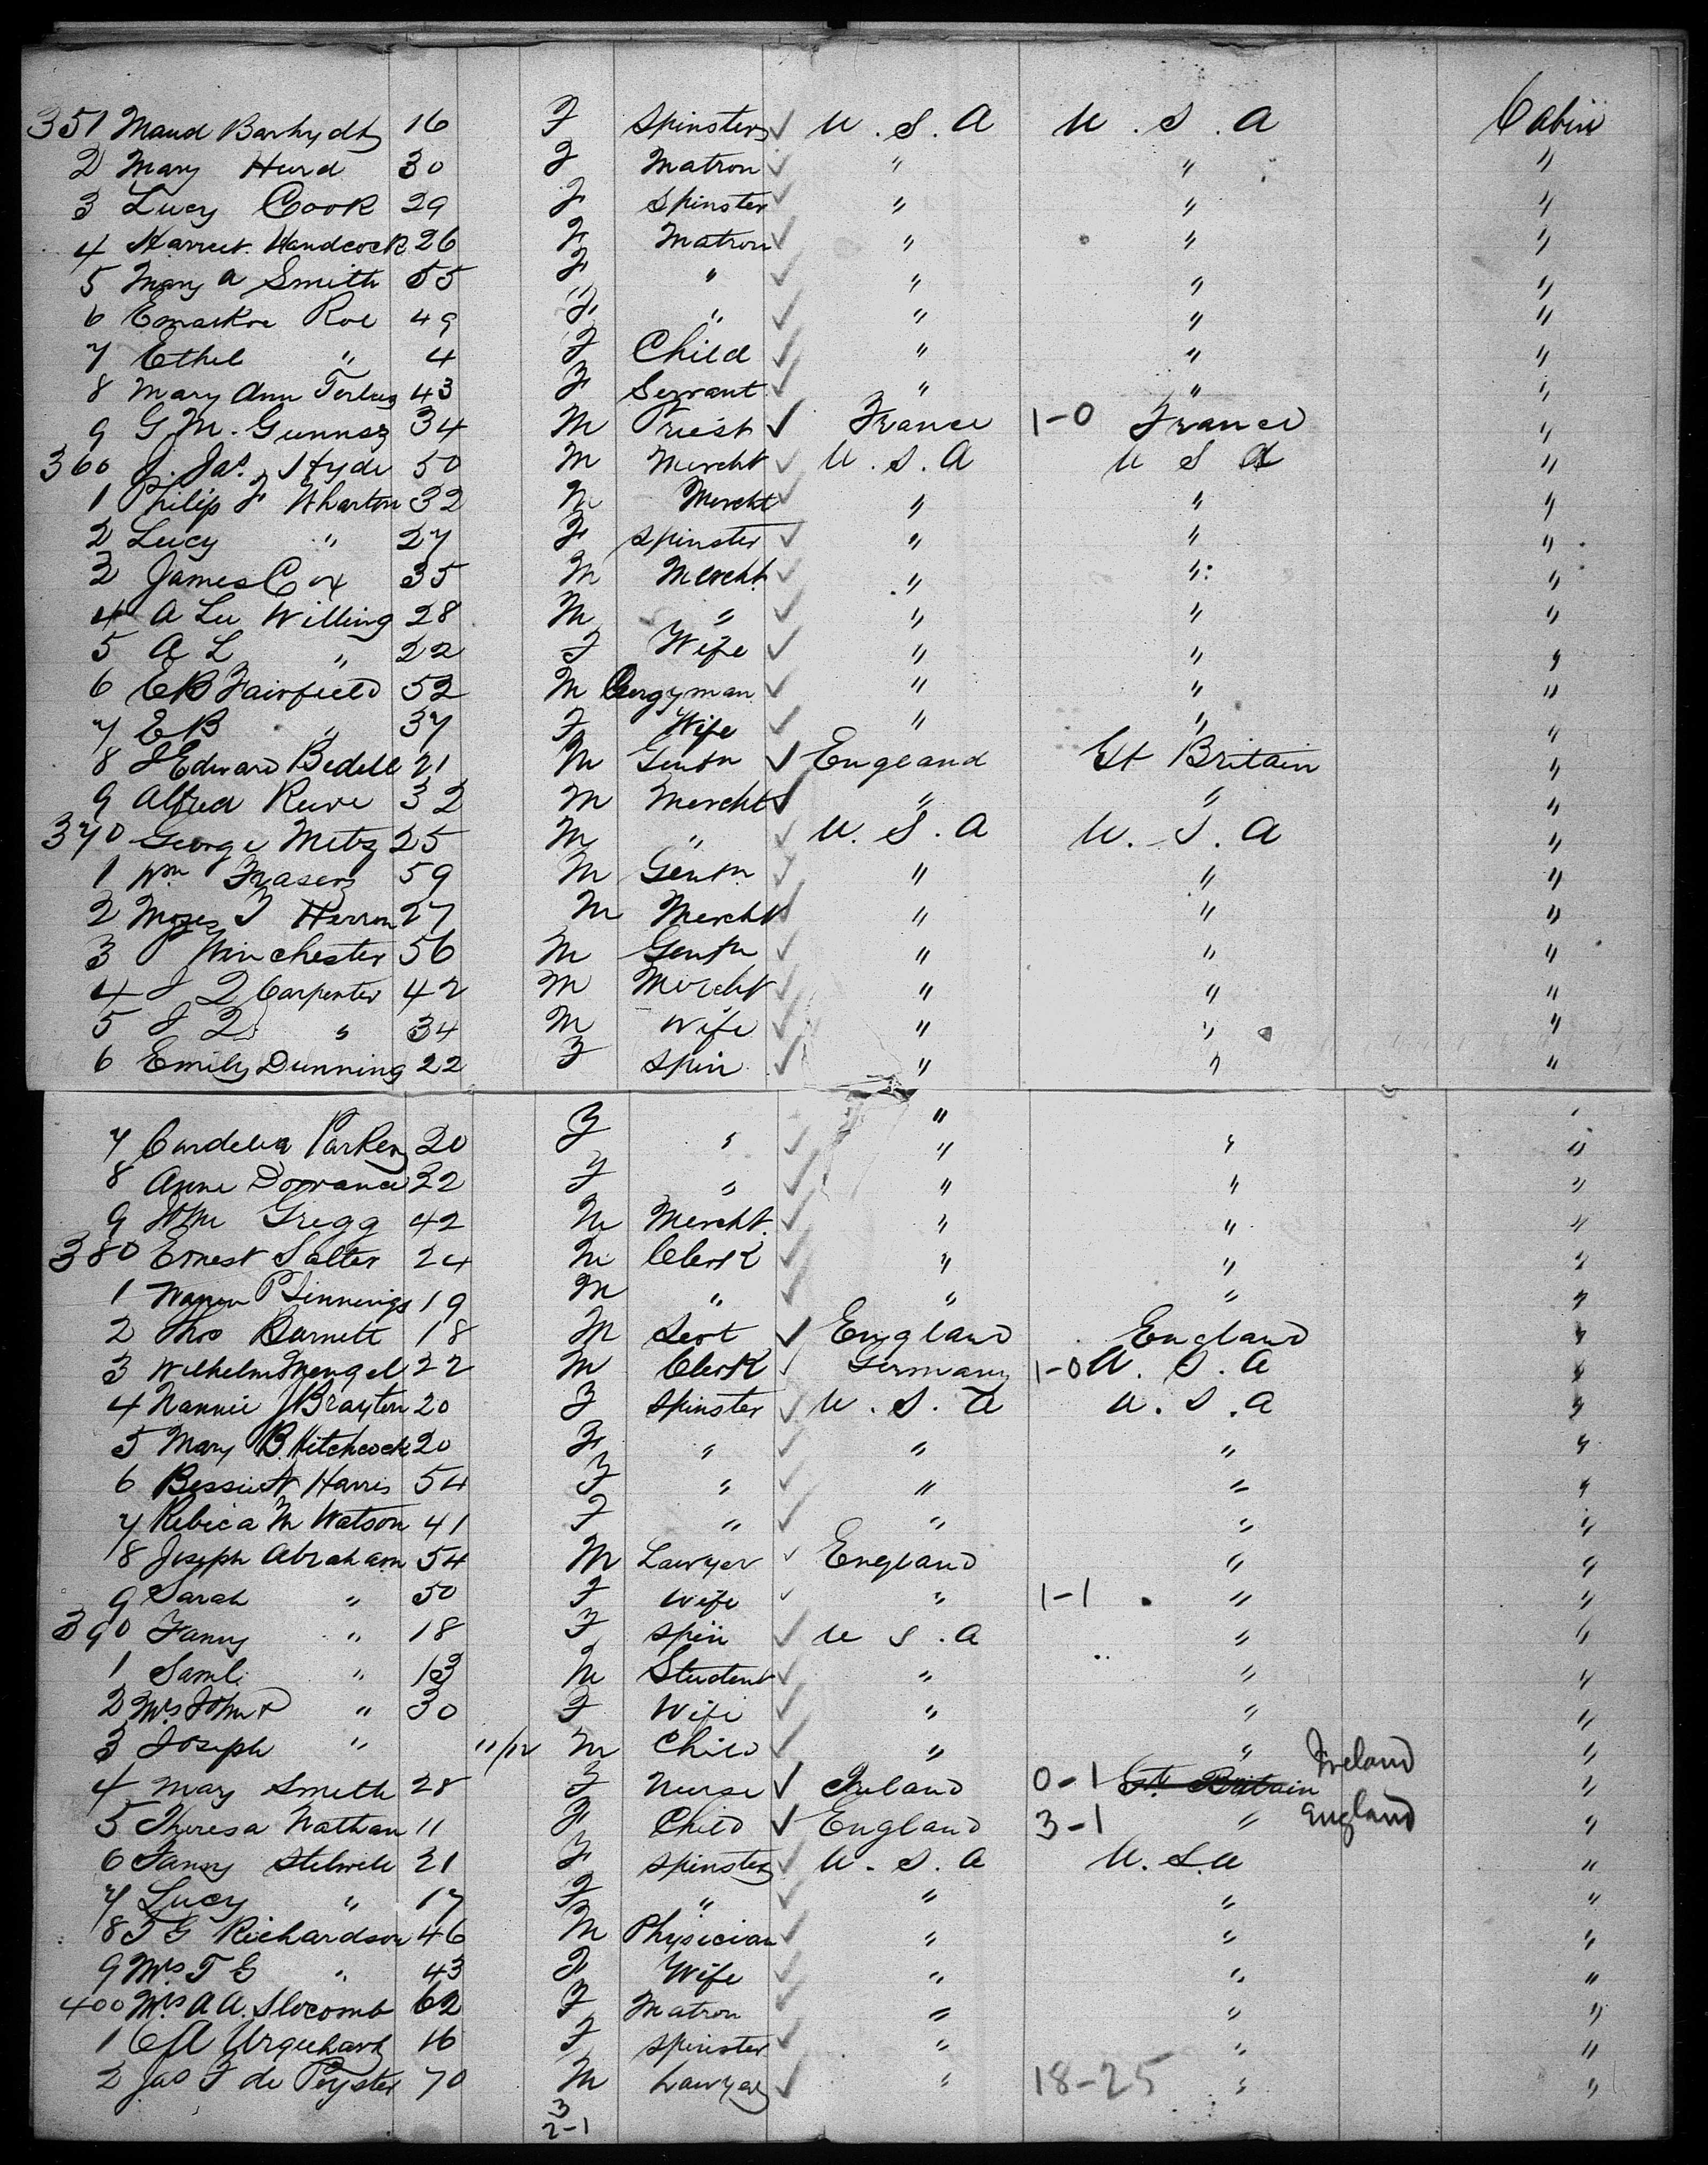 351 Maud Barhydt 16 F Spinster ✓ U.S.A U.S.A Cabin
2 Mary Hurd 30 F Matron ✓ " " "
3 Lucy Cook 29 F Spinster ✓ " " "
4 Harriet Handcock 26 F Matron ✓ " " "
5 Mary A Smith 55 F " ✓ " " "
6 Roe 49 F " ✓ " " "
7 Ethel " 4 F Child ✓ " " "
8 Mary Ann 43 F Servant ✓ " " "
9 G M. 34 M Priest ✓ France 1-0 France "
360 J. Jas. Hyde 50 M Mercht ✓ U.S.A U S A "
1 Philip F Wharton 32 M Mercht ✓ " " "
2 Lucy " 27 F Spinster ✓ " " "
3 James Cox 35 M Mercht ✓ " " "
4 A Lee Willing 28 M " ✓ " " "
5 A L " 22 F Wife ✓ " " "
6 E B Fairfield 52 M Clergyman ✓ " " "
7 E B " 37 F Wife ✓ " " "
8 J Edward Bedell 21 M Gentn ✓ England Gt Britain "
9 Alfred Reeve 32 M Mercht ✓ " " "
370 George Metz 25 M " ✓ U.S.A U.S.A "
1 Wm Fraser 59 M Gentn ✓ " " "
2 Moses T Herron 27 M Mercht ✓ " " "
3 P Winchester 56 M Gentn ✓ " " "
4 J Q Carpenter 42 M Mercht ✓ " " "
5 J Q " 34 M Wife ✓ " " "
6 Emily Dunning 22 F Spin ✓ " " "
7 Cordelia Parker 20 F " ✓ " " "
8 Anne Dorrance 22 F " ✓ " " "
9 John Gregg 42 M Mercht. ✓ " " "
380 Ernest Salter 24 M Clerk ✓ " " "
1 Warren P Jennings 19 M " ✓ " " "
2 Thos Barnett 18 M Sert ✓ England England "
3 Wilhelm Mengel 22 M Clerk ✓ Germany 1-0 U.S.A "
4 Nannie J Brayton 20 F Spinster ✓ U.S.A U.S.A "
5 Mary B. Hitchcock 20 F " ✓ " " "
6 Bessie A Harris 54 F " ✓ " " "
7 Rebica M Watson 41 F " ✓ " " "
8 Joseph Abraham 54 M Lawyer ✓ England " "
9 Sarah " 50 F Wife ✓ " 1-1 " "
390 Fanny " 18 F Spin ✓ U S.A " "
1 Saml. " 13 M Student ✓ " " "
2 Mrs John " 30 F Wife ✓ " " "
3 Joseph " 11/12 M Child ✓ " " "
4 Mary Smith 28 F Nurse ✓ Ireland 0-1 Gt. Britain Ireland "
5 Theresa Nathan 11 F Child ✓ England 3-1 " England "
6 Fanny Stilwell 21 F Spinster ✓ U.S.A U.S.A "
7 Lucy " 17 F " ✓ " " "
8 T G Richardson 46 M Physician ✓ " " "
9 Mrs T G " 43 F Wife ✓ " " "
400 Mrs A A Slocomb 62 F Matron ✓ " " "
1 C A Urquhart 16 F Spinster ✓ " " "
2 Jas F de Peyster 70 M Lawyer ✓ " 18-25 " "
3
2-1